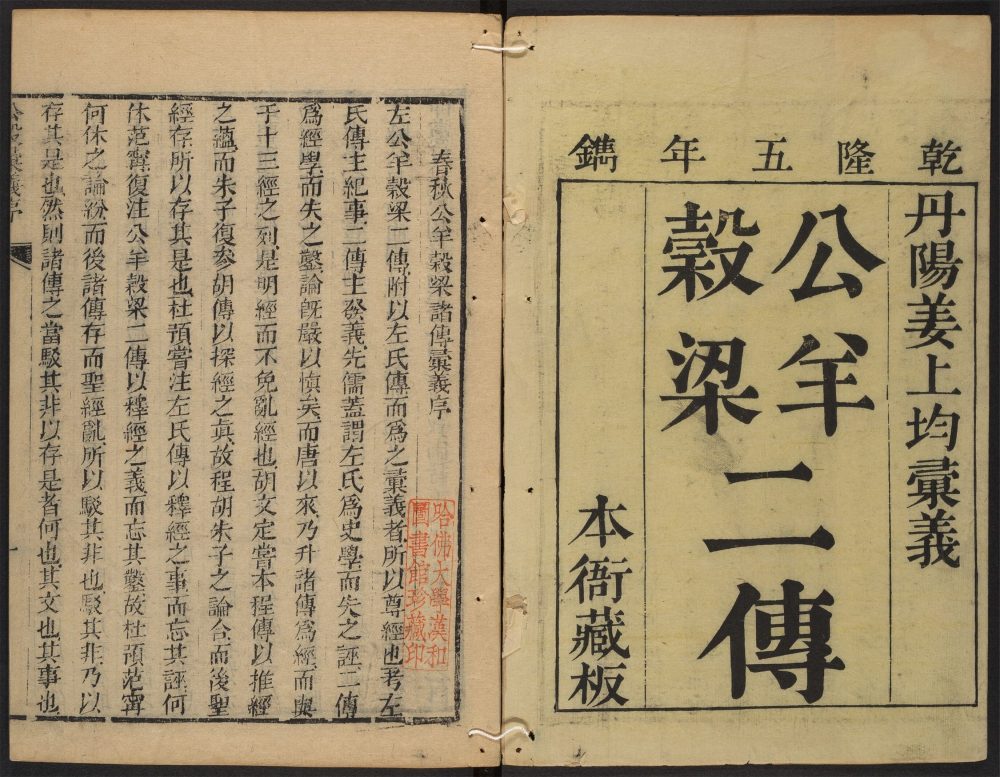 乾隆五年鐫
丹陽姜上均彙義
公羊
穀梁
二傳
本衙藏板
春秋公羊穀梁諸傳彙義序
左公羊穀梁二傳附以左氏傳而爲之彙義者所以尊經也考左
氏傳主紀事二傳主發義先儒蓋謂左氏爲史學而失之誣二傳
爲經學而失之鑿論旣嚴以愼矣而唐以來乃升諸傳爲經而與
于十三經之列是明經而不免亂經也胡文定嘗本程傳以推經
之蘊而朱子復參胡傳以探經之眞故程胡朱子之論合而後聖
經存所以存其是也杜預嘗注左氏傳以釋經之事而忘其誣何
休范甯復注公羊穀梁二傳以釋經之義而忘其鑿故杜預范甯
何休之論紛而後諸傳存而聖經亂所以駁其非也駁其非乃以
存其是也然則諸傳之當駁其非以存是者何也其文也其事也
哈佛大學漢和
圖書館珍藏印